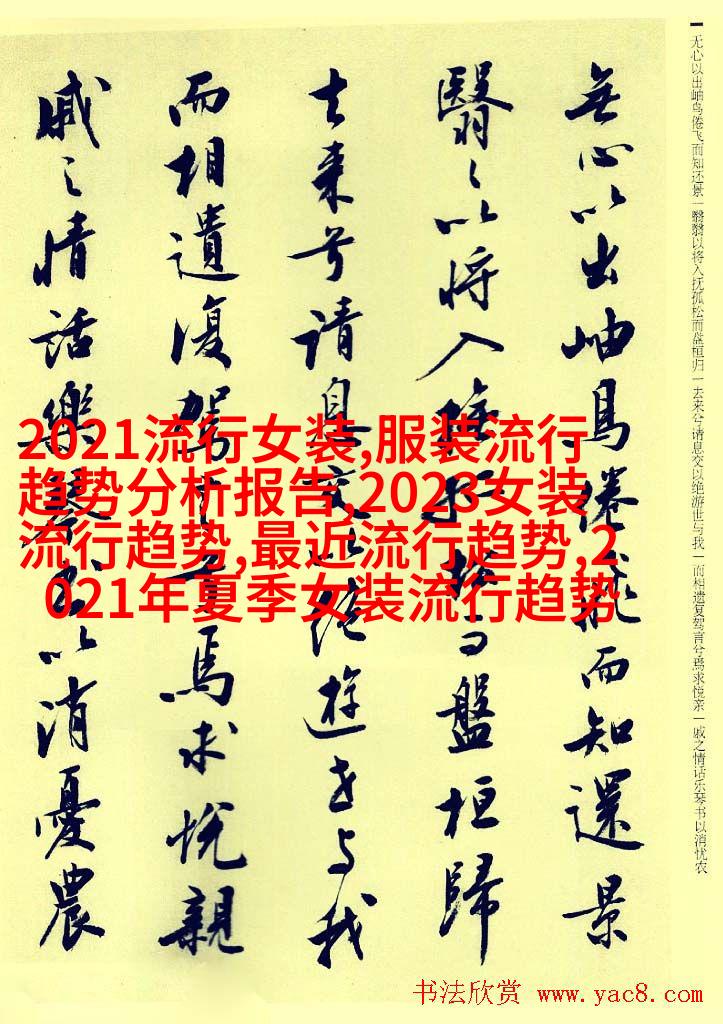 无心以出岫鸟倦飞而知还景一翳翳以将入抚孤松而盘桓归一去来兮请息交以绝游世与我一而相遗复驾言兮焉求悦亲一戚之情话乐琴书以消忧农
無心以出岫鳥倦飛而知還景
翳々以將入撫孤松而盤桓歸
去来兮請息交以絶遊世与我
而相遺復駕言兮焉求悦親
戚之情話樂琴書以消憂農
2021流行女装,服装流行
趋势分析报告,2023女装
流行趋势,最近流行趋势,2
021年夏季女装流行趋势
书法欣赏 www.yac8.com